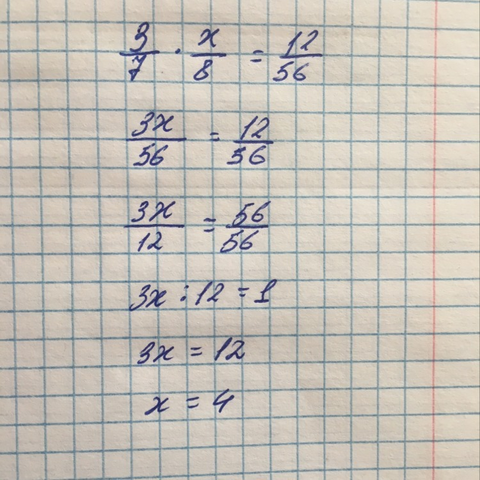 3/7 · x/8 = 12/56
3x/56 = 12/56
3x/12 = 56/56
3x : 12 = 1
3x = 12
x = 4